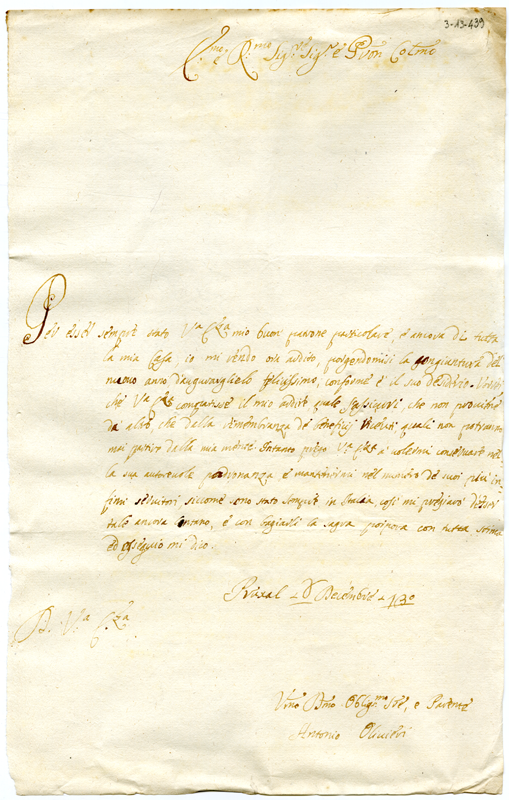 3-13-439
E.mo e R.mo Sig.re Sig.r e Pron Colmo
Per esser sempre stato V.a Eza mio buon patrone particolare, e ancora di tutta
la mia Casa io mi rendo ora ardito, porgendomisi la congiuntura del
nuovo anno d'augurarglielo felicissimo, conforme è il suo desiderio. Vorrei
che V.a compatisse il mio ardire quale l'assicuri, che non proviene
da altro che dalla rimembranza de benefizj ricevuti quali non potranno
mai partire dalla mia mente. Intanto prego V.a a volermi conservare nella
la sua autorevole padronanza, e mantenermi nel numero de suoi più in
fimi servitori siccome sono stato sempre in così mi pregiarò d'esser
tale ancora lontano, e con bagiarli la sagra porpora con tutta stima
ed ossequio mi dico.
Decembre 1730
D. V.a Eza
Umo Dmo Obligmo Sre, e Parente
Antonio Olivieri